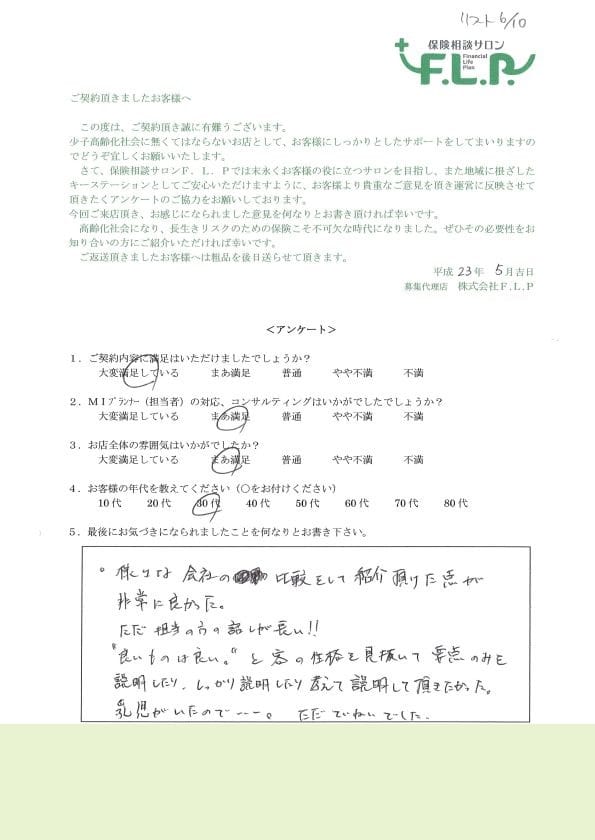 リスト 6/10
保険相談サロン
F.L.P.
Financial
Life
Plan
ご契約頂きましたお客様へ
この度は、ご契約頂き誠に有難うございます。
少子高齢化社会に無くてはならないお店として、お客様にしっかりとしたサポートをしてまいりますの
でどうぞ宜しくお願いいたします。
さて、保険相談サロンＦ．Ｌ．Ｐでは末永くお客様の役に立つサロンを目指し、また地域に根ざした
キーステーションとしてご安心いただけますように、お客様より貴重なご意見を頂き運営に反映させて
頂きたくアンケートのご協力をお願いしております。
今回ご来店頂き、お感じになられました意見を何なりとお書き頂ければ幸いです。
高齢化社会になり、長生きリスクのための保険こそ不可欠な時代になりました。ぜひその必要性をお
知り合いの方にご紹介いただければ幸いです。
ご返送頂きましたお客様へは粗品を後日送らせて頂きます。
平成 23 年 5 月吉日
募集代理店 株式会社Ｆ.Ｌ.Ｐ
＜アンケート＞
１．ご契約内容に満足はいただけましたでしょうか？
大変満足している まあ満足 普通 やや不満 不満
２．ＭＩﾌﾟﾗﾝﾅｰ（担当者）の対応、コンサルティングはいかがでしたでしょうか？
大変満足している まあ満足 普通 やや不満 不満
３．お店全体の雰囲気はいかがでしたか？
大変満足している まあ満足 普通 やや不満 不満
４．お客様の年代を教えてください（○をお付けください）
10代 20代 30代 40代 50代 60代 70代 80代
５．最後にお気づきになられましたことを何なりとお書き下さい。
。様々な 会社の 比較をして 紹介 頂けた点が
非常に良かった。
ただ 担当の方の話しが長い!!
"良いものは良い。"と 客の性格を見抜いて 要点のみを
説明したり、しっかり説明したり 考えて 説明して頂きたかった。
乳児がいたので---。 ただ ていねいでした。